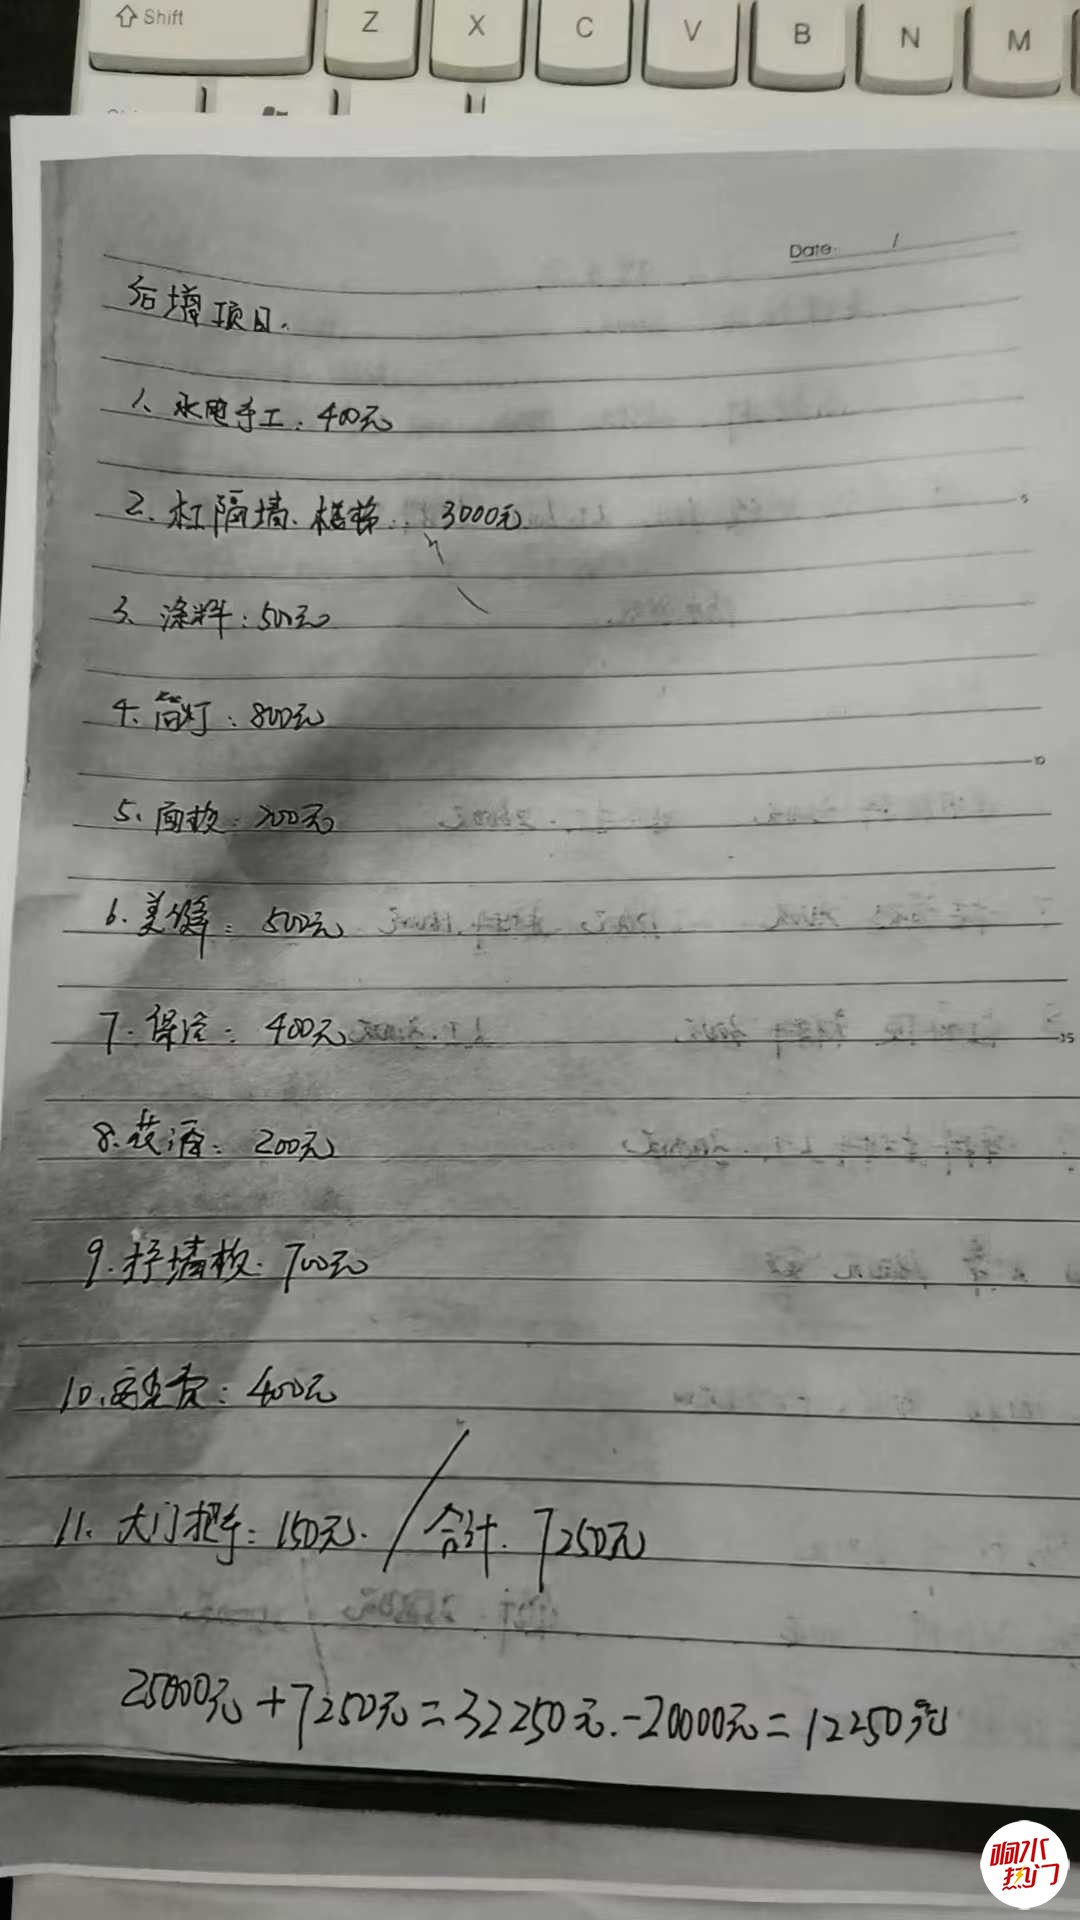 Shift
Z X C V B N M
Date /
后增项目.
1、水电手工:400元
2、杠隔墙、楼梯: 3000元
5
3、涂料:500元
4、筒灯:800元
10
5、面板:200元
6.美缝:500元
7.保洁:400元
15
8.花洒:200元
9.择墙板.700元
10.安全费:400元
11、大门把手:150元. / 合计.7250元
25000元+7250元=32250元.-20000元=12250元
响水
热门